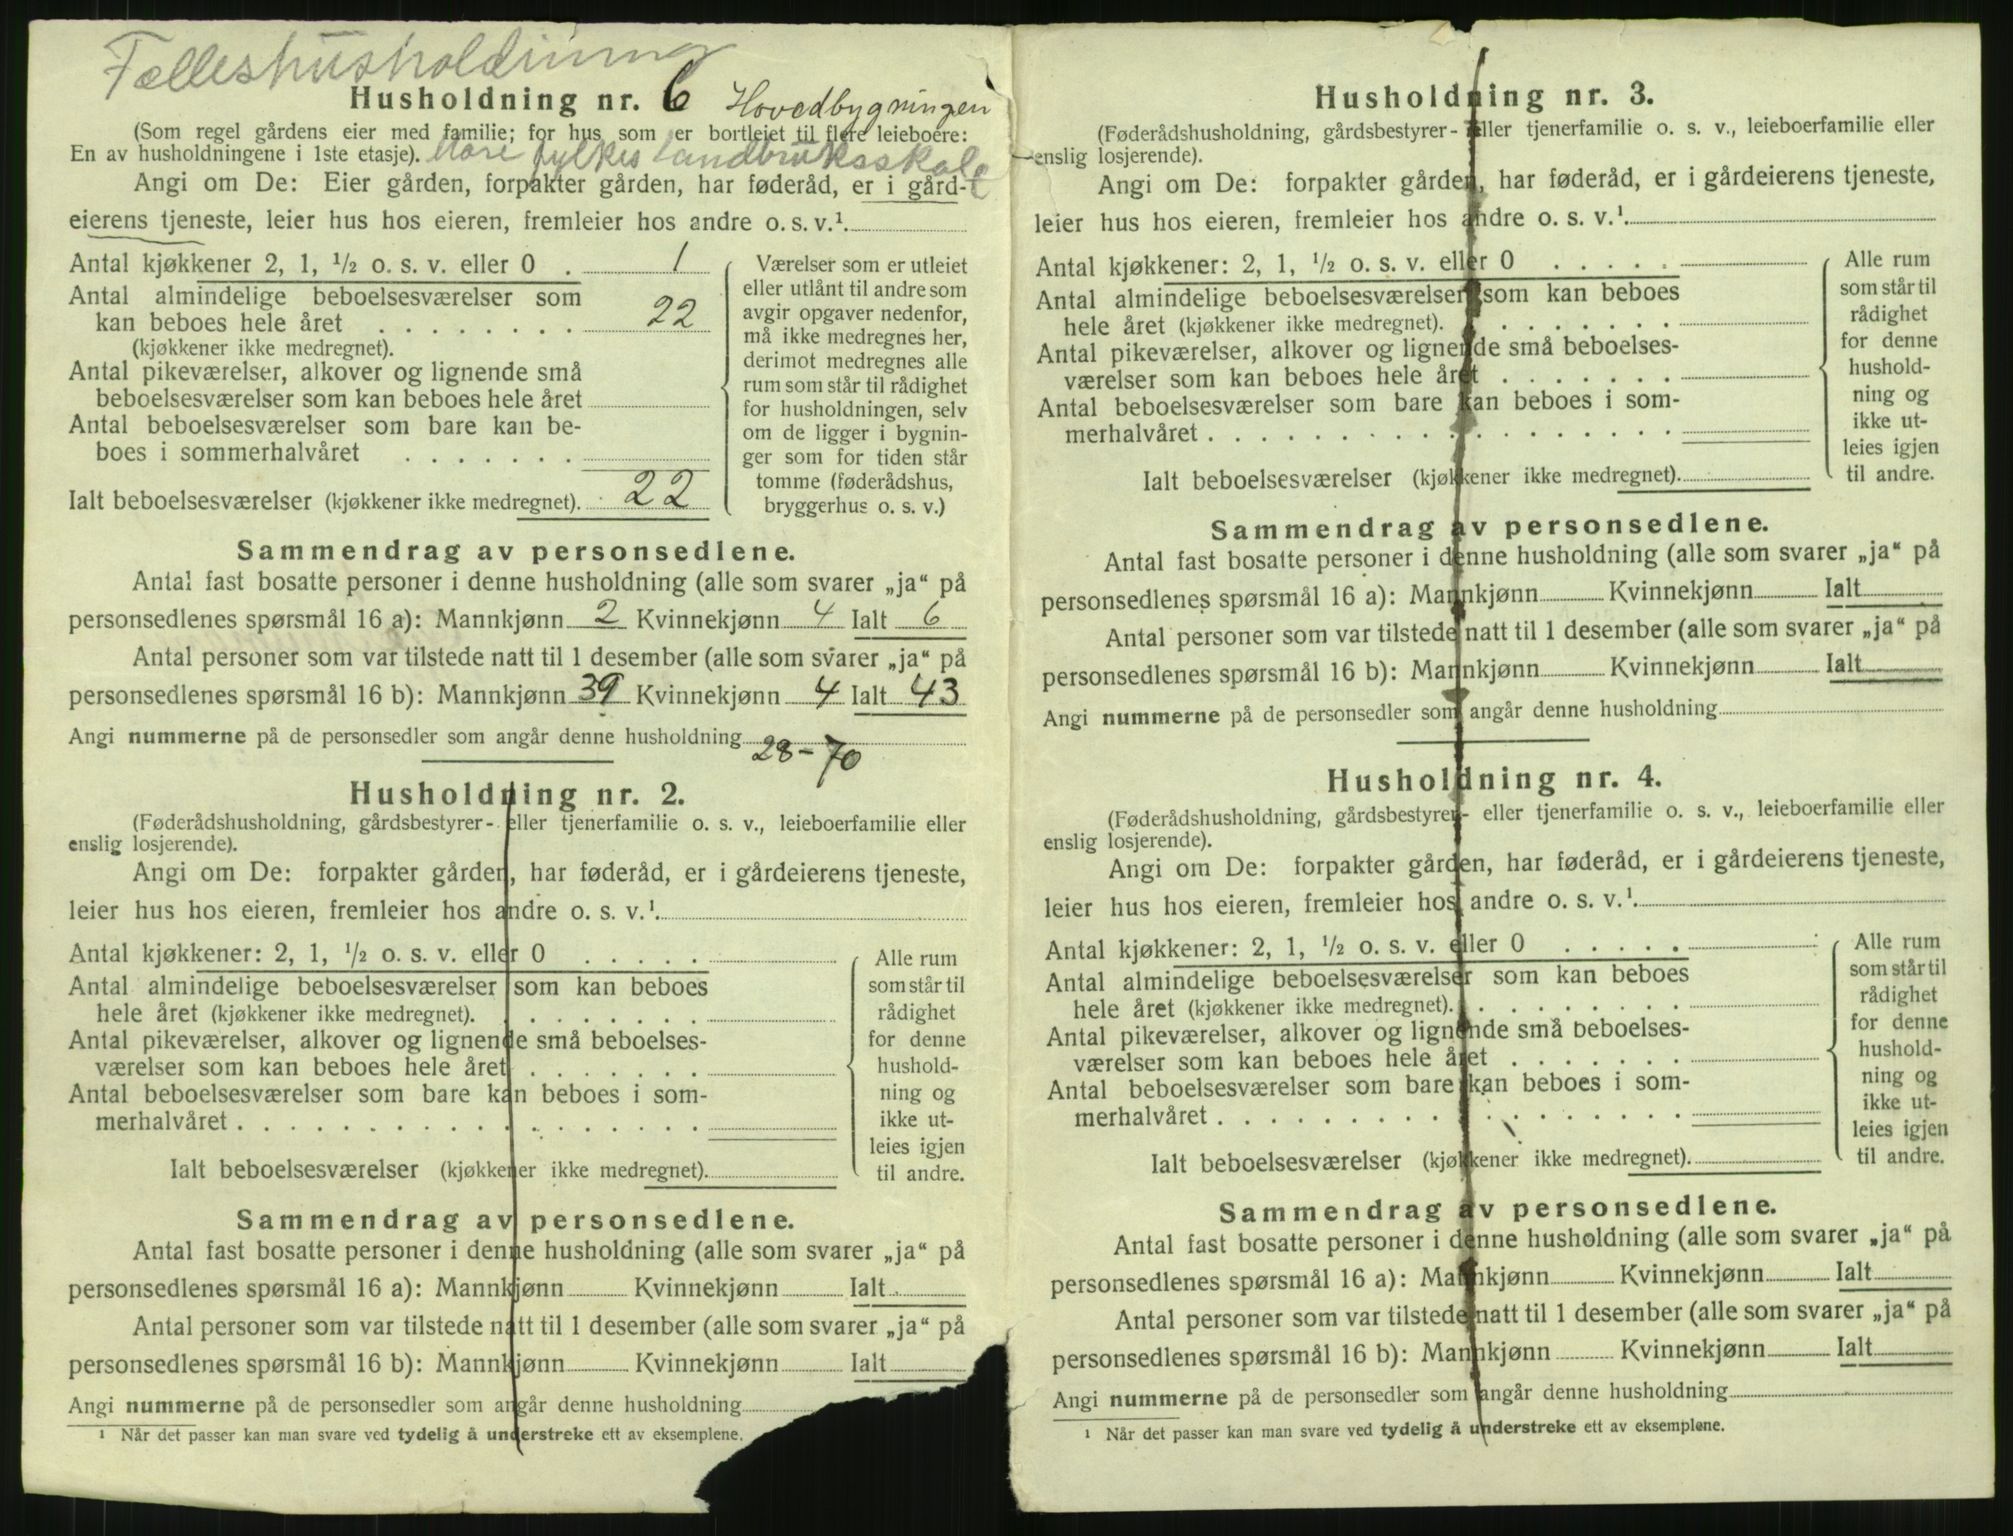 Fælleshusholdning
Husholdning nr. 6 Hovedbygningen
(Som regel gårdens eier med familie; for hus som er bortleiet til flere leieboere:
En av husholdningene i 1ste etasje). Møre fylkes landbruksskole
Angi om De: Eier gården, forpakter gården, har føderåd, er i gård-
eierens tjeneste, leier hus hos eieren, fremleier hos andre o. s. v.¹
Antal kjøkkener 2, 1, ½ o. s. v. eller 0 . 1
Antal almindelige beboelsesværelser som
kan beboes hele året . . . . . . . . 22
(kjøkkener ikke medregnet).
Antal pikeværelser, alkover og lignende små
beboelsesværelser som kan beboes hele året
Antal beboelsesværelser som bare kan be-
boes i sommerhalvåret . . . . . . .
Ialt beboelsesværelser (kjøkkener ikke medregnet). 22
Værelser som er utleiet
eller utlånt til andre som
avgir opgaver nedenfor,
må ikke medregnes her,
derimot medregnes alle
rum som står til rådighet
for husholdningen, selv
om de ligger i bygnin-
ger som for tiden står
tomme (føderådshus,
bryggerhus o. s. v.)
Sammendrag av personsedlene.
Antal fast bosatte personer i denne husholdning (alle som svarer „ja“ på
personsedlenes spørsmål 16 a): Mannkjønn 2 Kvinnekjønn 4 Ialt 6
Antal personer som var tilstede natt til 1 desember (alle som svarer „ja“ på
personsedlenes spørsmål 16 b): Mannkjønn 39 Kvinnekjønn 4 Ialt 43
Angi nummerne på de personsedler som angår denne husholdning
28-70
Husholdning nr. 2.
(Føderådshusholdning, gårdsbestyrer- eller tjenerfamilie o. s. v., leieboerfamilie eller
enslig losjerende).
Angi om De: forpakter gården, har føderåd, er i gårdeierens tjeneste,
leier hus hos eieren, fremleier hos andre o. s. v.¹
Antal kjøkkener: 2, 1, ½ o. s. v. eller 0 . . . . .
Antal almindelige beboelsesværelser som kan beboes
hele året (kjøkkener ikke medregnet). . . . . . . .
Antal pikeværelser, alkover og lignende små beboelses-
værelser som kan beboes hele året . . . . . . .
Antal beboelsesværelser som bare kan beboes i som-
merhalvåret . . . . . . . . . . . . . . . . .
Ialt beboelsesværelser (kjøkkener ikke medregnet).
Alle rum
som står til
rådighet
for denne
hushold-
ning og
ikke ut-
leies igjen
til andre.
Sammendrag av personsedlene.
Antal fast bosatte personer i denne husholdning (alle som svarer „ja“ på
personsedlenes spørsmål 16 a): Mannkjønn Kvinnekjønn Ialt
Antal personer som var tilstede natt til 1 desember (alle som svarer „ja“ på
personsedlenes spørsmål 16 b): Mannkjønn Kvinnekjønn Ialt
Angi nummerne på de personsedler som angår denne husholdning
¹ Når det passer kan man svare ved tydelig å understreke ett av eksemplene.
Husholdning nr. 3.
(Føderådshusholdning, gårdsbestyrer- eller tjenerfamilie o. s. v., leieboerfamilie eller
enslig losjerende).
Angi om De: forpakter gården, har føderåd, er i gårdeierens tjeneste,
leier hus hos eieren, fremleier hos andre o. s. v.¹
Antal kjøkkener: 2, 1, ½ o. s. v. eller 0 . . . . .
Antal almindelige beboelsesværelser som kan beboes
hele året (kjøkkener ikke medregnet). . . . . . . .
Antal pikeværelser, alkover og lignende små beboelses-
værelser som kan beboes hele året . . . . . . .
Antal beboelsesværelser som bare kan beboes i som-
merhalvåret . . . . . . . . . . . . . . . . .
Ialt beboelsesværelser (kjøkkener ikke medregnet).
Alle rum
som står til
rådighet
for denne
hushold-
ning og
ikke ut-
leies igjen
til andre.
Sammendrag av personsedlene.
Antal fast bosatte personer i denne husholdning (alle som svarer „ja“ på
personsedlenes spørsmål 16 a): Mannkjønn Kvinnekjønn Ialt
Antal personer som var tilstede natt til 1 desember (alle som svarer „ja“ på
personsedlenes spørsmål 16 b): Mannkjønn Kvinnekjønn Ialt
Angi nummerne på de personsedler som angår denne husholdning
Husholdning nr. 4.
(Føderådshusholdning, gårdsbestyrer- eller tjenerfamilie o. s. v., leieboerfamilie eller
enslig losjerende).
Angi om De: forpakter gården, har føderåd, er i gårdeierens tjeneste,
leier hus hos eieren, fremleier hos andre o. s. v.¹
Antal kjøkkener: 2, 1, ½ o. s. v. eller 0 . . . . .
Antal almindelige beboelsesværelser som kan beboes
hele året (kjøkkener ikke medregnet). . . . . . . .
Antal pikeværelser, alkover og lignende små beboelses-
værelser som kan beboes hele året . . . . . . .
Antal beboelsesværelser som bare kan beboes i som-
merhalvåret . . . . . . . . . . . . . . . . .
Ialt beboelsesværelser (kjøkkener ikke medregnet).
Alle rum
som står til
rådighet
for denne
hushold-
ning og
ikke ut-
leies igjen
til andre.
Sammendrag av personsedlene.
Antal fast bosatte personer i denne husholdning (alle som svarer „ja“ på
personsedlenes spørsmål 16 a): Mannkjønn Kvinnekjønn Ialt
Antal personer som var tilstede natt til 1 desember (alle som svarer „ja“ på
personsedlenes spørsmål 16 b): Mannkjønn Kvinnekjønn Ialt
Angi nummerne på de personsedler som angår denne husholdning
¹ Når det passer kan man svare ved tydelig å understreke ett av eksemplene.